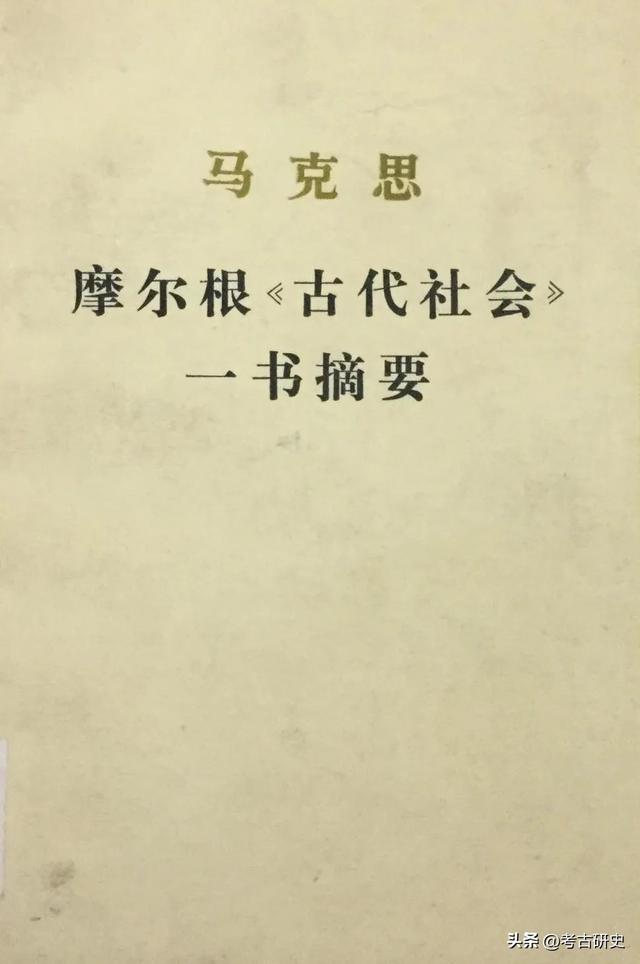 马克思
摩尔根《古代社会》
一书摘要
头条 @考古研史